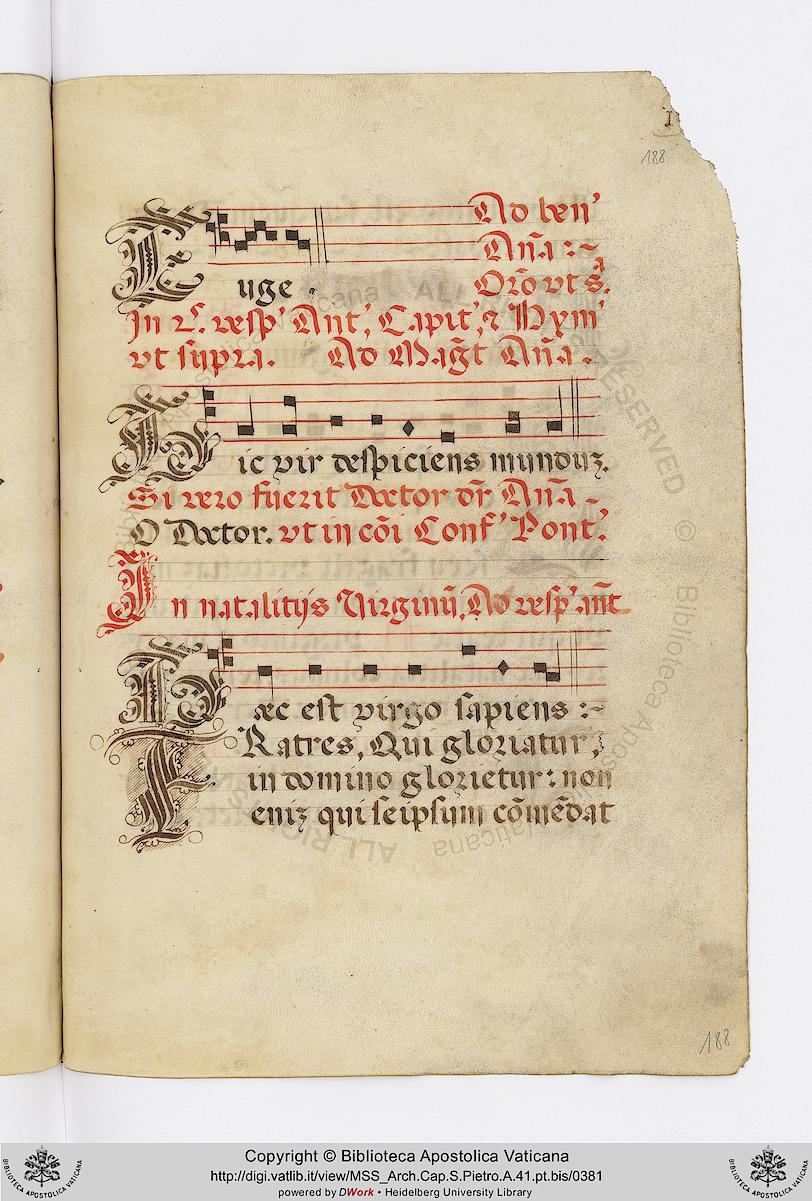 188
Ad ben'
Aña :~
Euge .
Orõ vt s̃.
In 2. vesp' Ant', Capit', 2 Hym'
vt supra. Ad Mag̃t Aña .
Hic vir despiciens munduz.
Si vero fuerit Doctor dr̃ Aña -
O Doctor. vt in cõi Conf' Pont'.
In natalitijs Virginũ, Ad vesp' añt
Hæc est virgo sapiens :~
FRatres, Qui gloriatur,
in domino glorietur: non
eniz qui seipsum cõmẽdat
188
Copyright © Biblioteca Apostolica Vaticana
http://digi.vatlib.it/view/MSS_Arch.Cap.S.Pietro.A.41.pt.bis/0381
powered by DWork • Heidelberg University Library
BIBLIOTECA APOSTOLICA VATICANA
BIBLIOTECA APOSTOLICA VATICANA